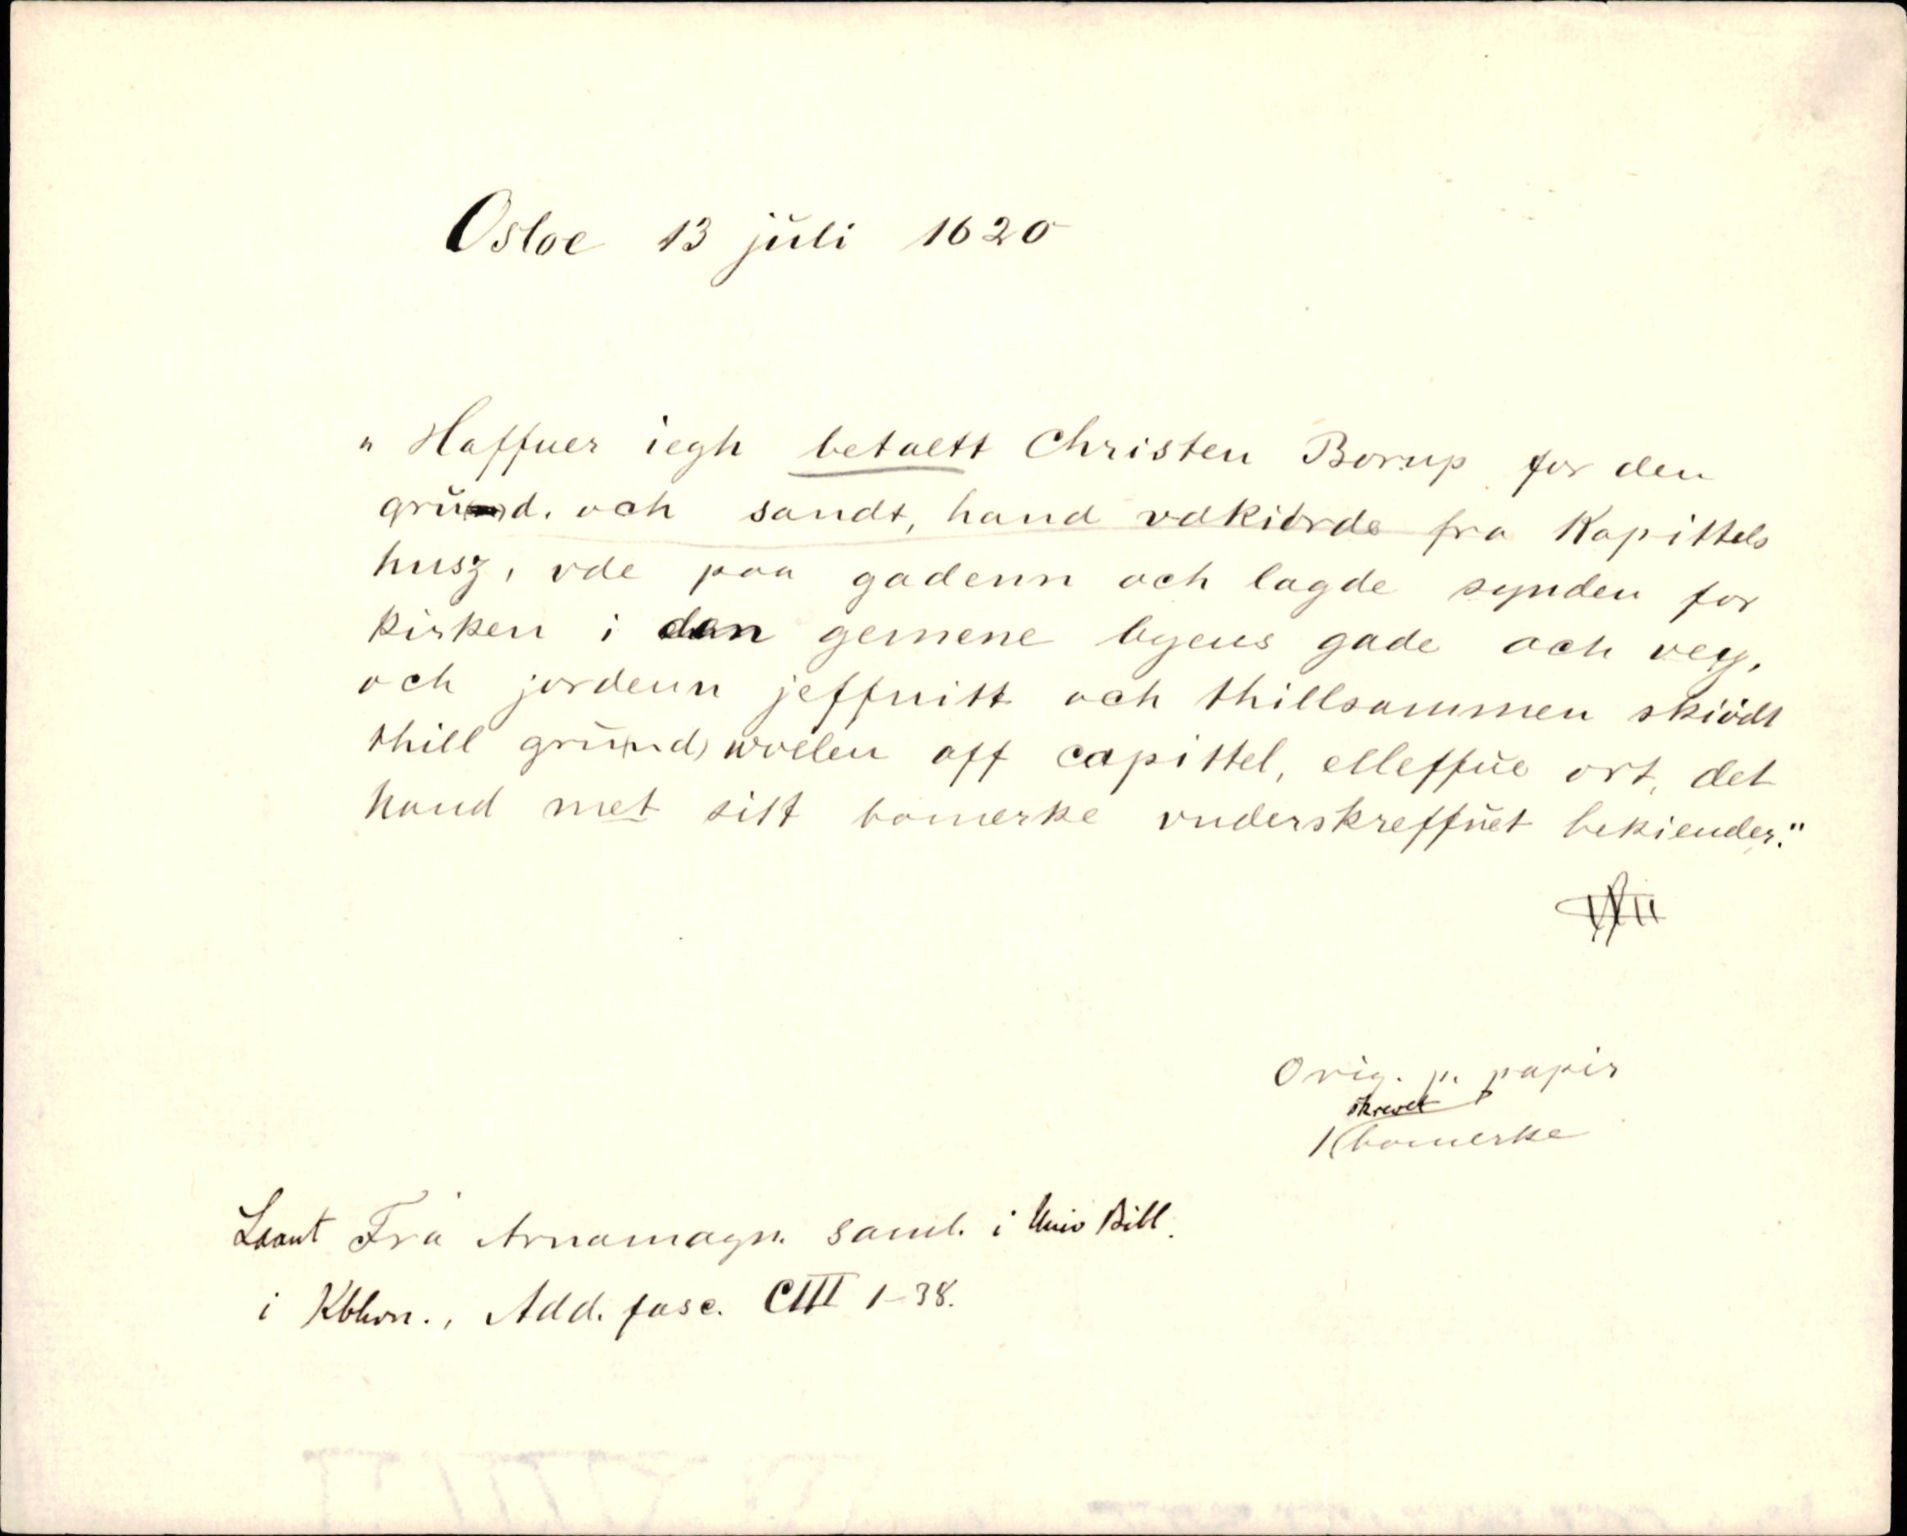 Osloe 13 jŭli 1620
"Haffuer iegh betaltt Christen Borup for den
grŭ(n)d. och sandt, hand vdkiörde fra Kapittels
husz, vde paa gadenn och lagde synden for
kirken i den gemene byens gade och vey,
och jordenn jeffnitt och thillsammen skiödt
thill grŭ(n)d) wolen aff capittel, elleffŭe ort, det
hand met sitt bomerke vnderskreffŭet bekiender."
Orig. p. papir
skrevet
1 bomerke
Laant Fra Arnamagn. saml. i Univ Bibl.
i Kbhvn., Add. fasc. CIII 1-38.